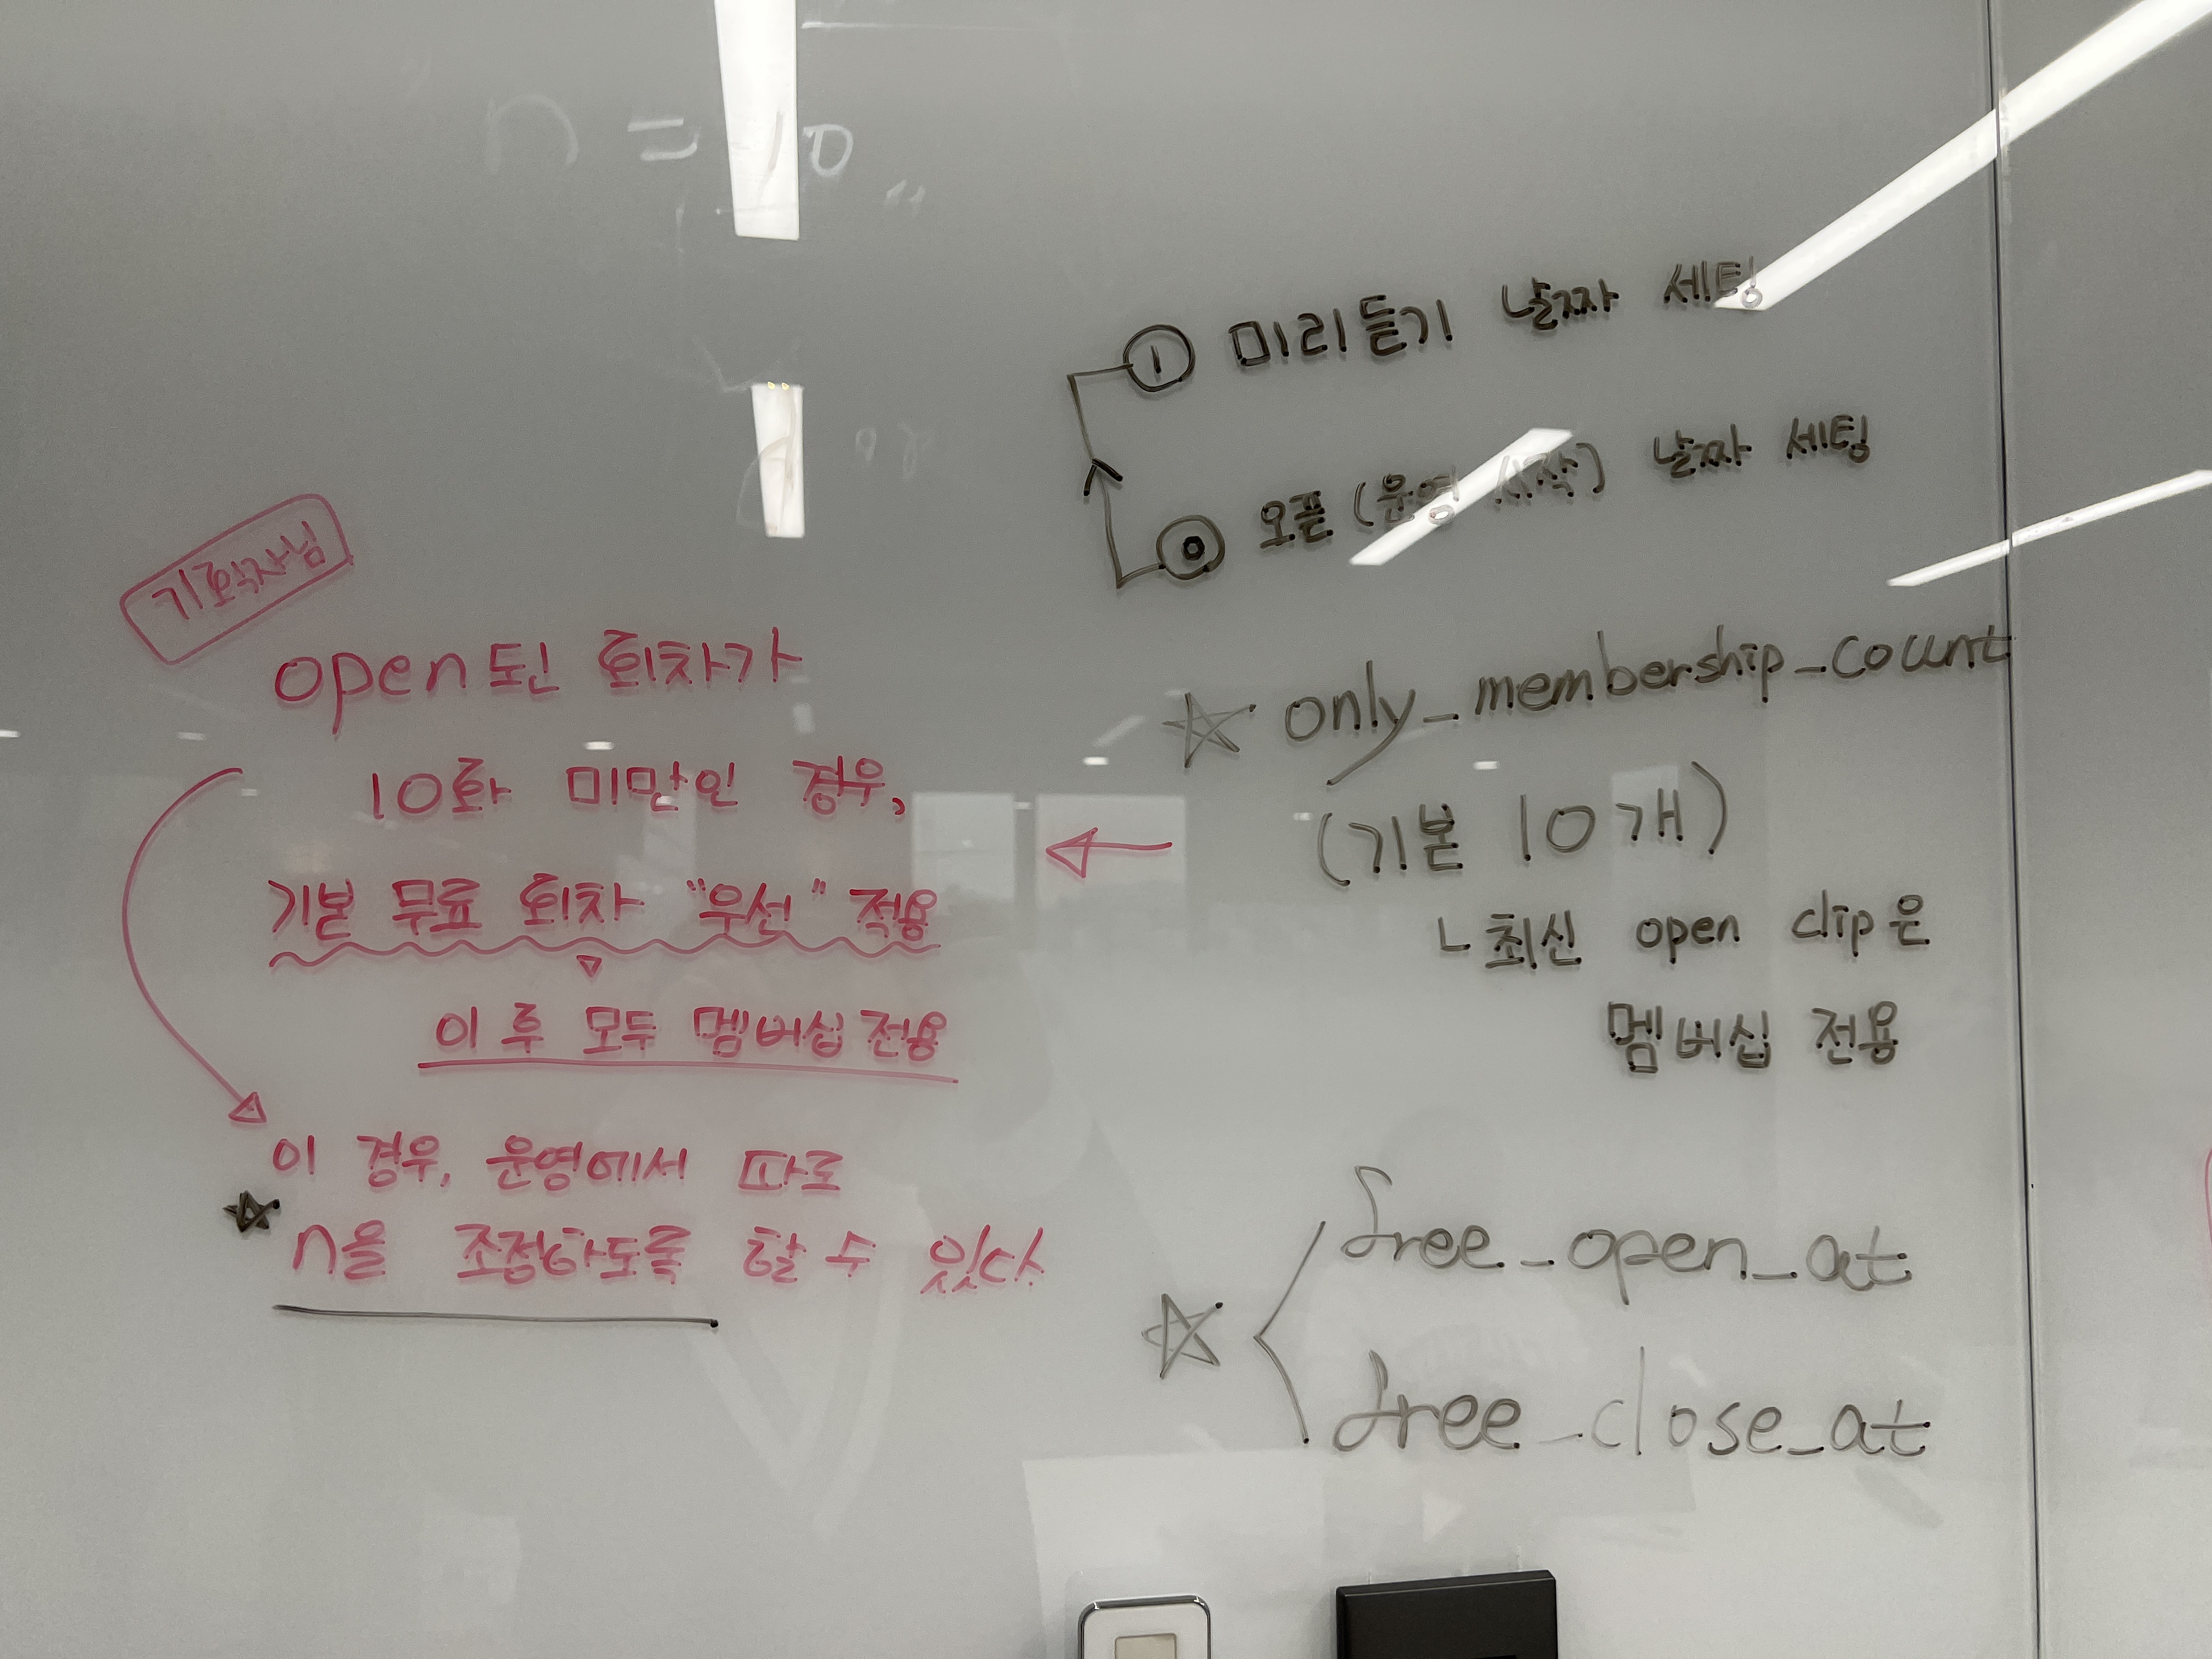 n = 10
① 미리듣기 날짜 세팅
⓪ 오픈 (운영 시작) 날짜 세팅
open된 회차가
10화 미만인 경우,
기본 무료 회차 "우선" 적용
이후 모두 멤버십 전용
이 경우, 운영에서 따로
☆ n을 조정하도록 할 수 있다
☆ only_membership_count
(기본 10개)
ㄴ최신 open clip은
멤버십 전용
☆ free_open_at
free_close_at